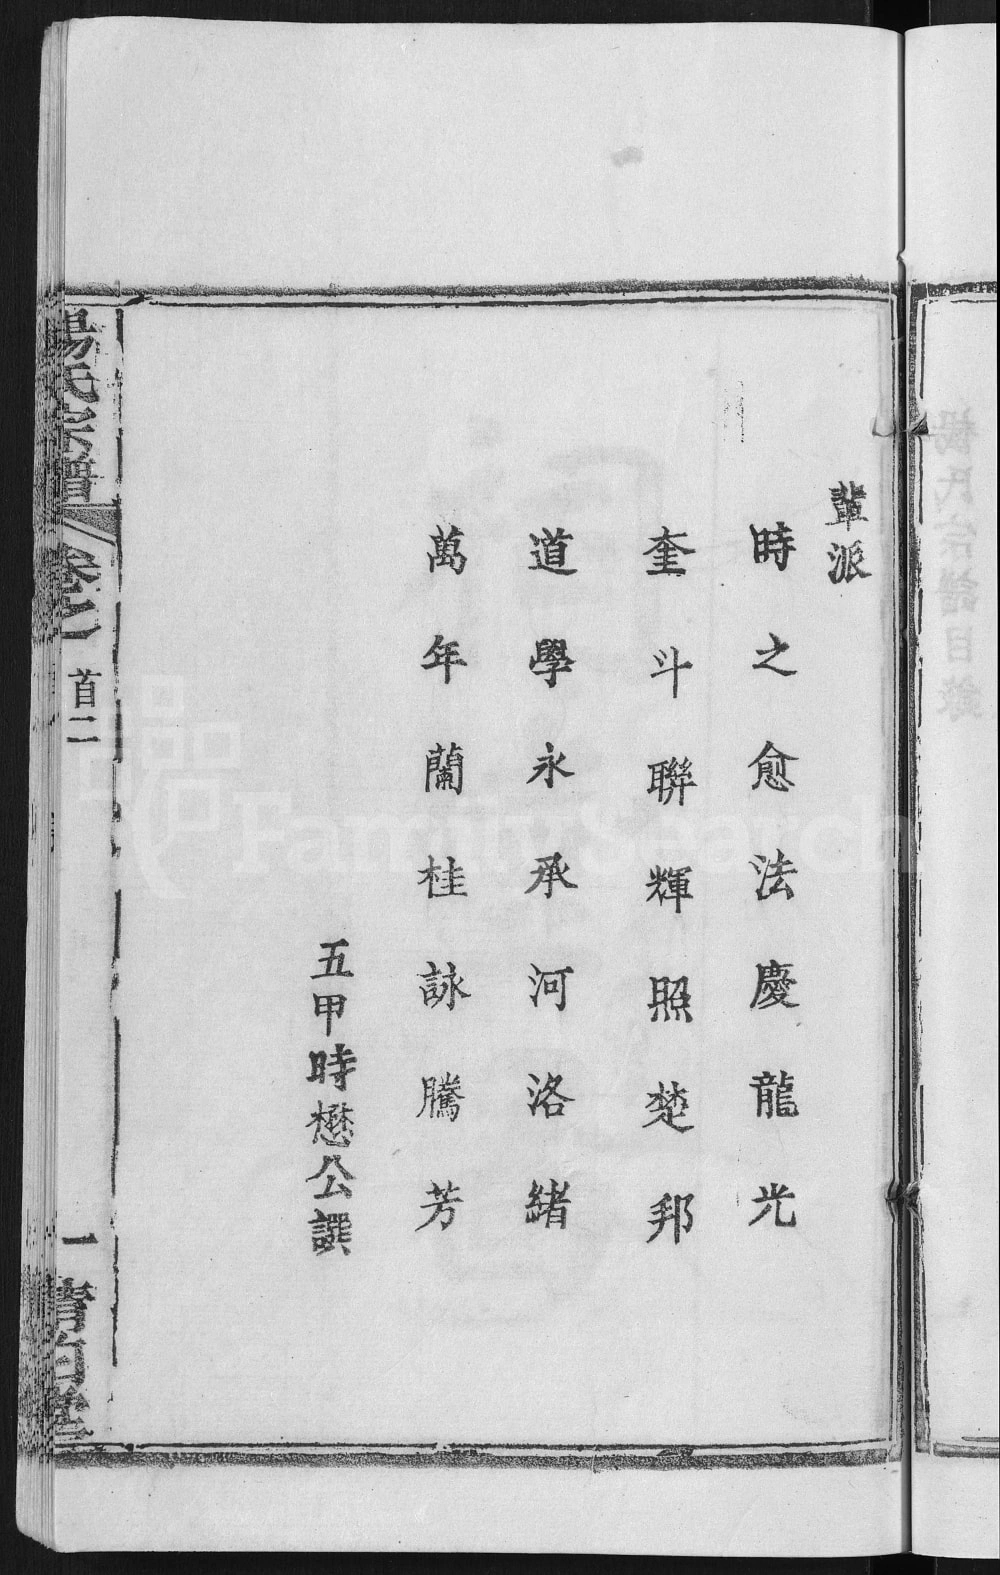 輩派
時之愈法慶龍光
奎斗聯輝照楚邦
道學永承河洛緒
萬年蘭桂詠騰芳
五甲時懋公譔
楊氏宗譜
卷之一
首二
一
清白堂
楊氏宗譜目錄
FamilySearch